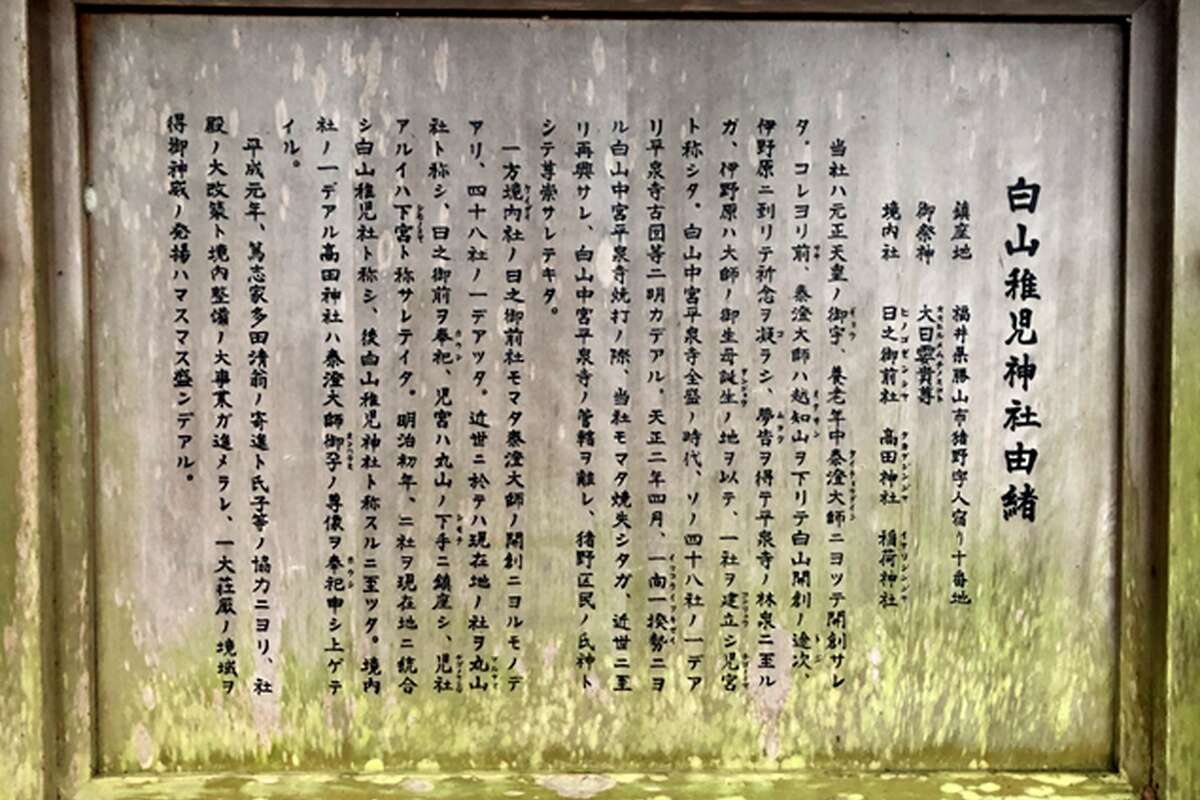 白山稚児神社由緒
鎮座地　福井県勝山市猪野字人宿リ十番地
御祭神　大日孁貴尊
境内社　日之御前社　高田神社　稲荷神社
当社ハ元正天皇ノ御宇、養老年中泰澄大師ニヨツテ開創サレ
タ。コレヨリ前、泰澄大師ハ越知山ヲ下リテ白山開創ノ途次、
伊野原ニ到リテ祈念ヲ凝ラシ、夢告ヲ得テ平泉寺ノ林泉ニ至ル
ガ、伊野原ハ大師ノ御生母誕生ノ地ヲ以テ、一社ヲ建立シ児宮
ト称シタ。白山中宮平泉寺全盛ノ時代、ソノ四十八社ノ一デア
リ平泉寺古図等ニ明カデアル。天正二年四月、一向一揆勢ニヨ
ル白山中宮平泉寺焼打ノ際、当社モマタ焼失シタガ、近世ニ至
リ再興サレ、白山中宮平泉寺ノ管轄ヲ離レ、猪野区民ノ氏神ト
シテ尊崇サレテキタ。
一方境内社ノ日之御前社モマタ泰澄大師ノ開創ニヨルモノデ
アリ、四十八社ノ一デアツタ。近世ニ於テハ現在地ノ社ヲ丸山
社ト称シ、日之御前ヲ奉祀、児宮ハ丸山ノ下手ニ鎮座シ、児社
アルイハ下宮ト称サレテイタ。明治初年、二社ヲ現在地ニ統合
シ白山稚児社ト称シ、後白山稚児神社ト称スルニ至ツタ。境内
社ノ一デアル高田神社ハ泰澄大師御孕ノ尊像ヲ奉祀申シ上ゲテ
イル。
平成元年、篤志家多田清翁ノ寄進ト氏子等ノ協力ニヨリ、社
殿ノ大改築ト境内整備ノ大事業ガ進メラレ、一大荘厳ノ境域ヲ
得御神威ノ発揚ハマスマス盛ンデアル。